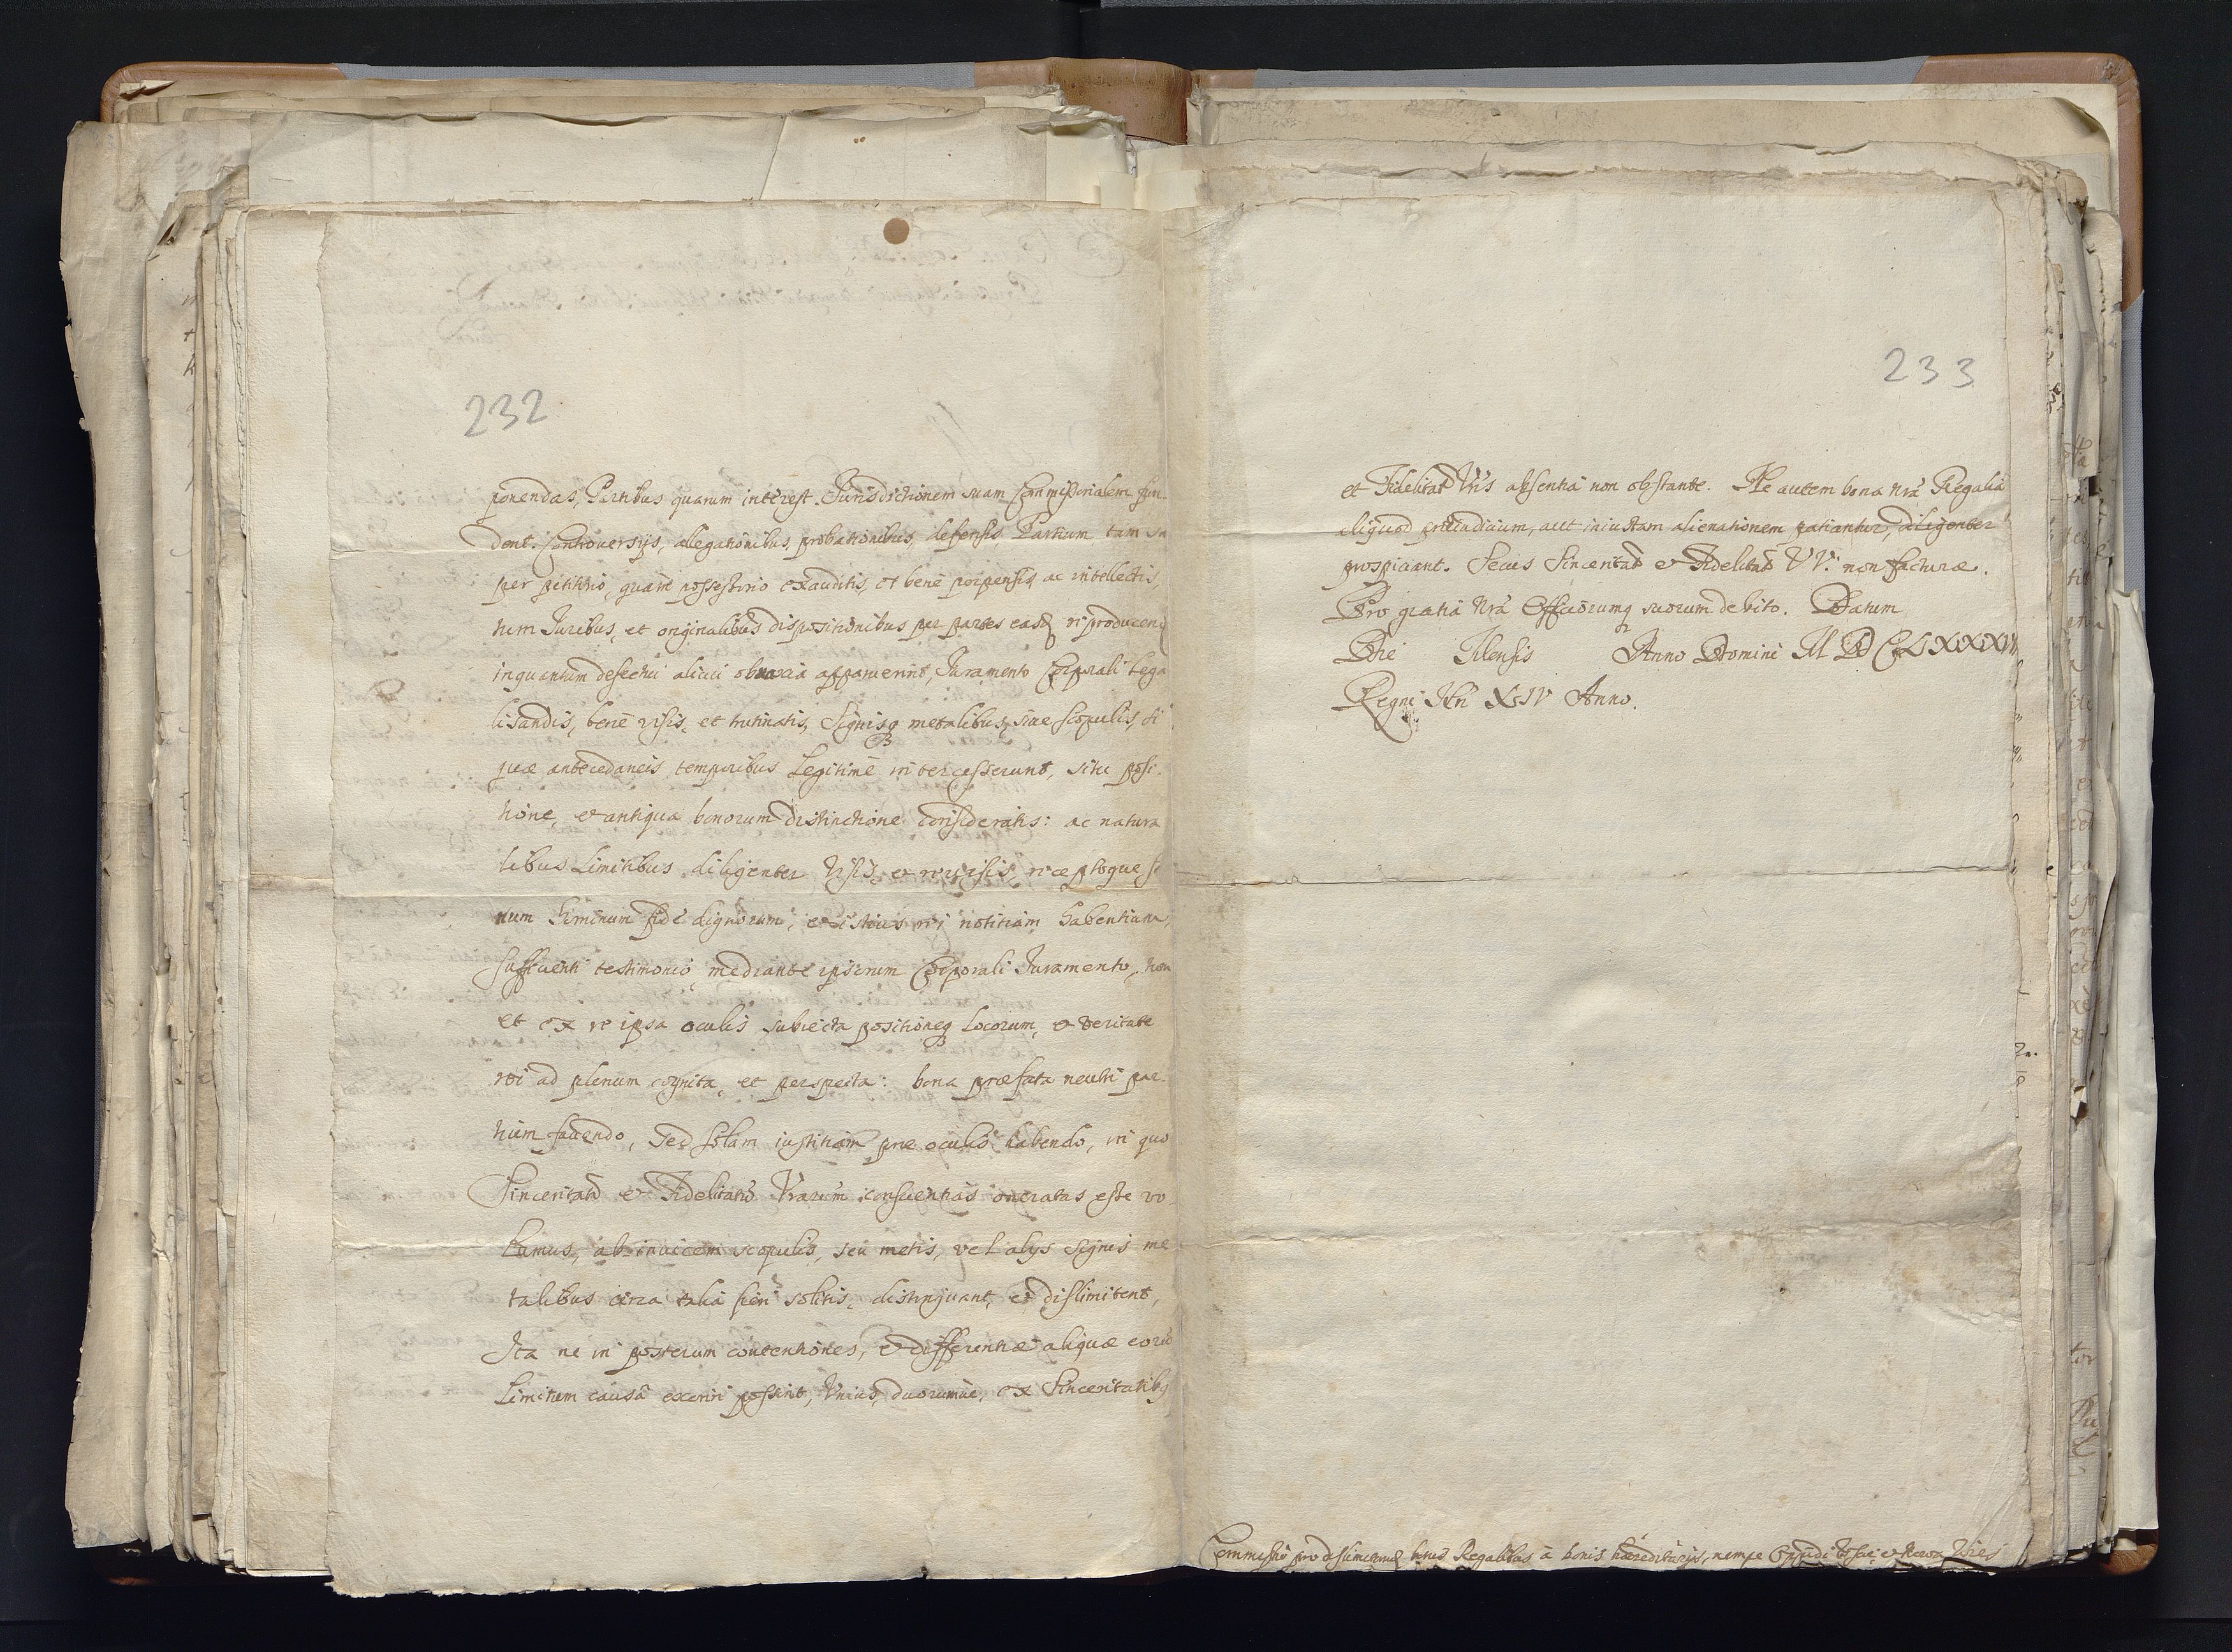 232
ponendas, Partibus quarum interest. Jurisdictionem suam Commissorialem fun-
dent. Controversijs, allegationibus, probationibus, defensis Partium tam su
per petitorio, quam possessorio exauditis, et bene perpensis ac intellectis,
tum Juribus, et originalibus dispositionibus per partes easd reproducend
inquantum defectui alicui obnoxia apparuerint, Juramento Corporali Lega
lisandis, bene visis, et trutinatis, Signisq metalibus, siue scopulis, si
quæ antecedaneis temporibus Legitimè intercesserunt, situ posi-
tione, et antiqua bonorum distinctione consideratis: ac natura
libus Limitibus diligenter Visis, et revisis, receptoque se
num hominum fide dignorum, et istius rei notitiam habentium,
sufficienti testimonio, mediante ipsorum Corporali Juramento, tum
et ex re ipsa oculis subiecta positioneq Locorum, et veritate
rei ad plenum cognita, et perspecta: bona præfata neutri par-
tium fauendo, sed solam iustitiam præ oculis habendo, in quo
Sinceritatū et Fidelitatū Vrarum conscientias oneratas esse vo-
lumus, ab inuicem scopulis, seu metis, vel alijs signis me
talibus circa talia fieri solitis, distinguant, et dislimitent,
Ita ne in posterum contentiones, et differentiæ aliquæ eorū
Limitum causâ exoriri possint, Vnius, duorumue, ex Sinceritatibq
233
et Fidelitat Vris absentia non obstante. Ne autem bona nra Regalia
aliquod præiudicium, aut iniustam alienationem patiantur, diligenter
prospiciant. Secus Sinceritat et Fidelitat VV: non facturæ.
Pro gratia Nra Officiorumq suorum debito. Datum
Die Mensis Anno Domini M D C LXXXVII
Regni Nri XIV Anno.
Commissio pro dislimitand bonis Regalibus à bonis hæreditarijs, nempe Oppidi et noua Wies